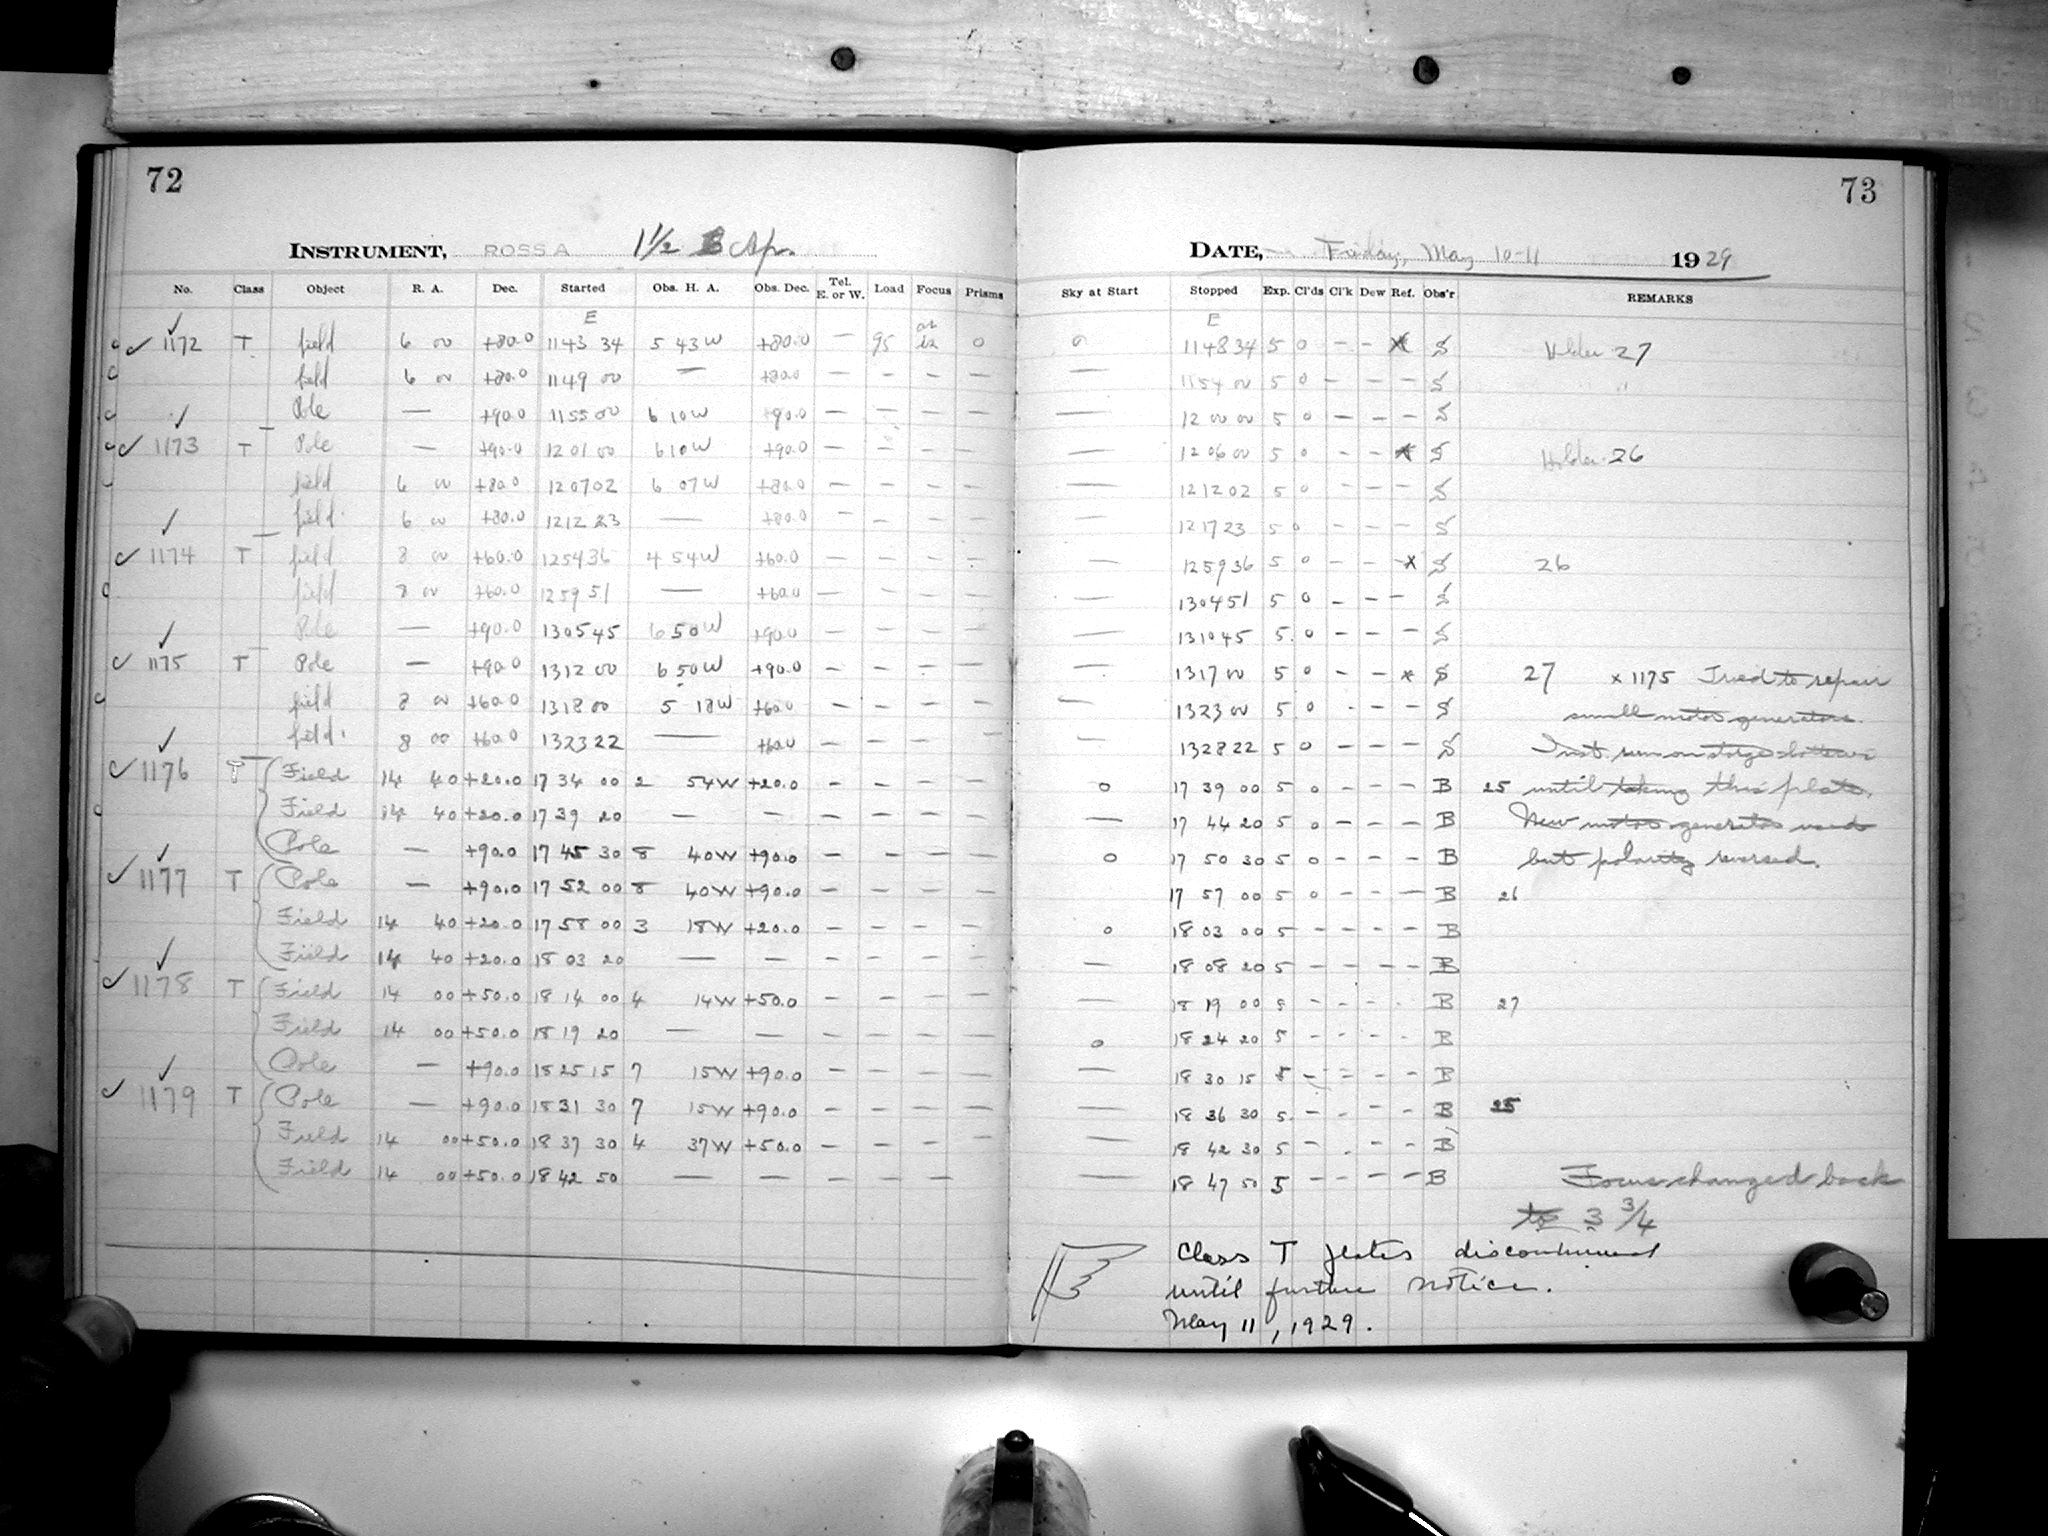 72
INSTRUMENT, ROSS A 1½ B Ap.
No. Class Object R. A. Dec. Started Obs. H. A. Obs. Dec. Tel. E. or W. Load Focus Prisms
E
✓ 1172 T field 6 00 +80.0 11 43 34 5 43 W +80.0 — 95 as is 0
field 6 00 +80.0 11 49 00 — +80.0 — — — —
Pole — +90.0 11 55 00 6 10 W +90.0 — — — —
✓ 1173 T Pole — +90.0 12 01 00 6 10 W +90.0 — — — —
field 6 00 +80.0 12 07 02 6 07 W +80.0 — — — —
field 6 00 +80.0 12 12 23 — +80.0 — — — —
✓ 1174 T field 8 00 +60.0 12 54 36 4 54 W +60.0 — — — —
field 8 00 +60.0 12 59 51 — +60.0 — — — —
Pole — +90.0 13 05 45 6 50 W +90.0 — — — —
✓ 1175 T Pole — +90.0 13 12 00 6 50 W +90.0 — — — —
field 8 00 +60.0 13 18 00 5 18 W +60.0 — — — —
field 8 00 +60.0 13 23 22 — +60.0 — — — —
✓ 1176 T Field 14 40 +20.0 17 34 00 2 54 W +20.0 — — — —
Field 14 40 +20.0 17 39 20 — — — — — —
Pole — +90.0 17 45 30 8 40 W +90.0 — — — —
✓ 1177 T Pole — +90.0 17 52 00 8 40 W +90.0 — — — —
Field 14 40 +20.0 17 58 00 3 18 W +20.0 — — — —
Field 14 40 +20.0 18 03 20 — — — — — —
✓ 1178 T Field 14 00 +50.0 18 14 00 4 14 W +50.0 — — — —
Field 14 00 +50.0 18 19 20 — — — — — —
Pole — +90.0 18 25 15 7 15 W +90.0 — — — —
✓ 1179 T Pole — +90.0 18 31 30 7 15 W +90.0 — — — —
Field 14 00 +50.0 18 37 30 4 37 W +50.0 — — — —
Field 14 00 +50.0 18 42 50 — — — — — —
73
DATE, Friday, May 10-11 1929
Sky at Start Stopped Exp. Cl'ds Cl'k Dew Ref. Obs'r REMARKS
E
0 11 48 34 5 0 — — x S Holder 27
— 11 54 00 5 0 — — — S "
— 12 00 00 5 0 — — — S
— 12 06 00 5 0 — — x S Holder 26
— 12 12 02 5 0 — — — S
— 12 17 23 5 0 — — — S
— 12 59 36 5 0 — — x S 26
— 13 04 51 5 0 — — — S
— 13 10 45 5 0 — — — S
— 13 17 00 5 0 — — x S 27 x 1175 Tried to repair
— 13 23 00 5 0 — — — S small motor generators.
— 13 28 22 5 0 — — — S
0 17 39 00 5 0 — — — B 25 until taking this plate.
— 17 44 20 5 0 — — — B New motor generator used
0 17 50 30 5 0 — — — B but polarity reversed.
17 57 00 5 0 — — — B 26
0 18 03 00 5 — — — — B
— 18 08 20 5 — — — — B
— 18 19 00 5 — — — — B 27
0 18 24 20 5 — — — — B
— 18 30 15 5 — — — — B
— 18 36 30 5 — — — — B 25
— 18 42 30 5 — — — B
— 18 47 50 5 — — — — B Focus changed back
to 3 3/4
Class T plates discontinued
until further notice.
May 11, 1929.